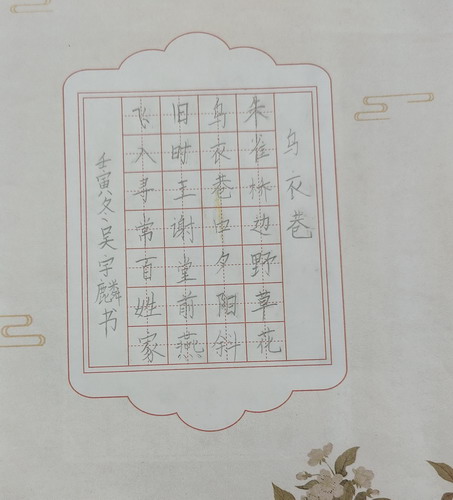 乌衣巷
朱雀桥边野草花
乌衣巷口夕阳斜
旧时王谢堂前燕
飞入寻常百姓家
壬寅冬吴宇麟书